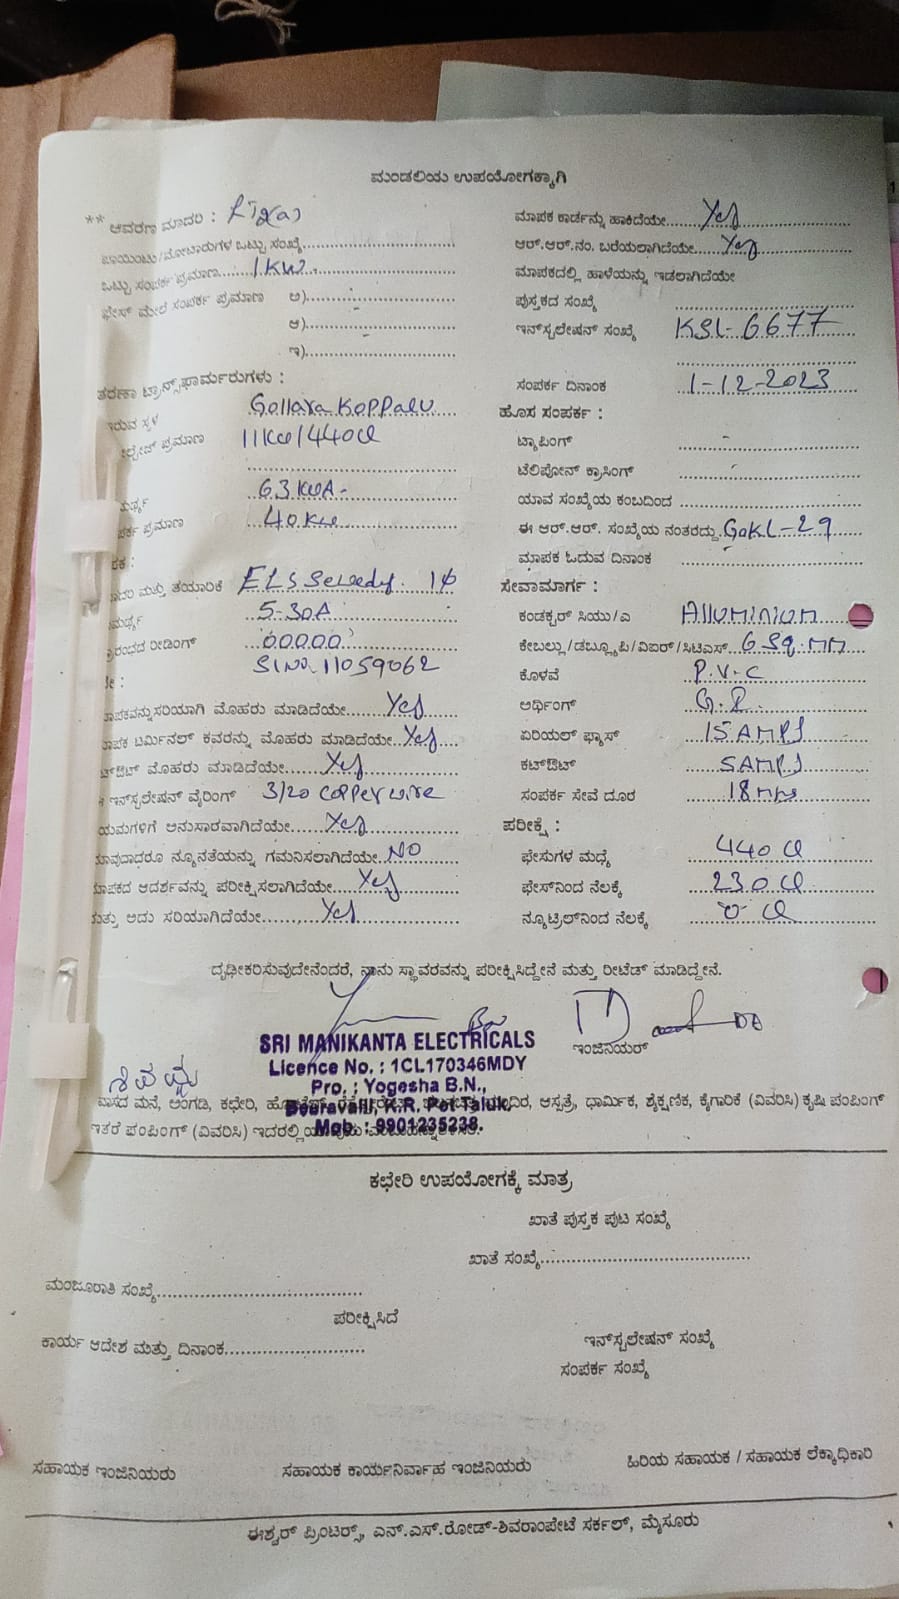 ಮಂಡಲಿಯ ಉಪಯೋಗಕ್ಕಾಗಿ
** ಆವರಣ ಮಾದರಿ :
ಪಾಯಿಂಟು/ಮೋಟಾರುಗಳ ಒಟ್ಟು ಸಂಖ್ಯೆ
ಒಟ್ಟು ಸಂಪರ್ಕ ಪ್ರಮಾಣ 1 KW
ಫೇಸ್ ಮೇಲೆ ಸಂಪರ್ಕ ಪ್ರಮಾಣ ಅ)
ಆ)
ಇ)
ತರಣಾ ಟ್ರಾನ್ಸ್‌ಫಾರ್ಮರುಗಳು :
ಇರುವ ಸ್ಥಳ Gollara Koppalu
ಪ್ರಮಾಣ 11KV/440V
63 KVA
ಪ್ರಮಾಣ 40 KW
ಮತ್ತು ತಯಾರಿಕೆ 1ϕ
5-30A
ರೀಡಿಂಗ್ 00000
Sl No. 11059062
ಮೊಹರು ಮಾಡಿದೆಯೇ Yes
ಟರ್ಮಿನಲ್ ಕವರನ್ನು ಮೊಹರು ಮಾಡಿದೆಯೇ Yes
ಮೊಹರು ಮಾಡಿದೆಯೇ Yes
ಇನ್‌ಸ್ಟಲೇಷನ್ ವೈರಿಂಗ್ 3/20 copper wire
ಅನುಸಾರವಾಗಿದೆಯೇ Yes
ನ್ಯೂನತೆಯನ್ನು ಗಮನಿಸಲಾಗಿದೆಯೇ NO
ಆದರ್ಶವನ್ನು ಪರೀಕ್ಷಿಸಲಾಗಿದೆಯೇ Yes
ಮತ್ತು ಅದು ಸರಿಯಾಗಿದೆಯೇ Yes
ಮಾಪಕ ಕಾರ್ಡನ್ನು ಹಾಕಿದೆಯೇ Yes
ಆರ್.ಆರ್.ನಂ. ಬರೆಯಲಾಗಿದೆಯೇ Yes
ಮಾಪಕದಲ್ಲಿ ಹಾಳೆಯನ್ನು ಇಡಲಾಗಿದೆಯೇ
ಪುಸ್ತಕದ ಸಂಖ್ಯೆ
ಇನ್‌ಸ್ಟಲೇಷನ್ ಸಂಖ್ಯೆ KSL-6677
ಸಂಪರ್ಕ ದಿನಾಂಕ 1-12-2023
ಹೊಸ ಸಂಪರ್ಕ :
ಟ್ಯಾಪಿಂಗ್
ಟೆಲಿಪೋನ್ ಕ್ರಾಸಿಂಗ್
ಯಾವ ಸಂಖ್ಯೆಯ ಕಂಬದಿಂದ
ಈ ಆರ್.ಆರ್. ಸಂಖ್ಯೆಯ ನಂತರದ್ದು GOKL-29
ಮಾಪಕ ಓದುವ ದಿನಾಂಕ
ಸೇವಾಮಾರ್ಗ :
ಕಂಡಕ್ಟರ್ ಸಿಯು/ಎ Alluminium
ಕೇಬಲ್ಲು/ಡಬ್ಲ್ಯೂಪಿ/ವಿಐರ್/ಸಿಟಿಎಸ್ 6 Sq.mm
ಕೊಳವೆ P.V.C
ಅರ್ಥಿಂಗ್ G.I
ಏರಿಯಲ್ ಫ್ಯೂಸ್ 15 AMPS
ಕಟ್‌ಔಟ್ 5 AMPS
ಸಂಪರ್ಕ ಸೇವೆ ದೂರ
ಪರೀಕ್ಷೆ :
ಫೇಸುಗಳ ಮಧ್ಯೆ 440 V
ಫೇಸ್‌ನಿಂದ ನೆಲಕ್ಕೆ 230 V
ನ್ಯೂಟ್ರಲ್‌ನಿಂದ ನೆಲಕ್ಕೆ 0 V
ದೃಢೀಕರಿಸುವುದೇನೆಂದರೆ, ನಾನು ಸ್ಥಾವರವನ್ನು ಪರೀಕ್ಷಿಸಿದ್ದೇನೆ ಮತ್ತು ರೀಟೆಡ್ ಮಾಡಿದ್ದೇನೆ.
SRI MANIKANTA ELECTRICALS
ಇಂಜಿನಿಯರ್
Licence No. : 1CL170346MDY
Pro. : Yogesha B.N.,
ವಾಸದ ಮನೆ, ಅಂಗಡಿ, ಕಛೇರಿ, ಆಸ್ಪತ್ರೆ, ಧಾರ್ಮಿಕ, ಶೈಕ್ಷಣಿಕ, ಕೈಗಾರಿಕೆ (ವಿವರಿಸಿ) ಕೃಷಿ ಪಂಪಿಂಗ್
Beeravalli, K.R. Pet Taluk,
ಇತರೆ ಪಂಪಿಂಗ್ (ವಿವರಿಸಿ) ಇದರಲ್ಲಿ
Mob. : 9901235238.
ಕಛೇರಿ ಉಪಯೋಗಕ್ಕೆ ಮಾತ್ರ
ಖಾತೆ ಪುಸ್ತಕ ಪುಟ ಸಂಖ್ಯೆ
ಖಾತೆ ಸಂಖ್ಯೆ
ಮಂಜೂರಾತಿ ಸಂಖ್ಯೆ
ಪರೀಕ್ಷಿಸಿದೆ
ಕಾರ್ಯ ಆದೇಶ ಮತ್ತು ದಿನಾಂಕ
ಇನ್‌ಸ್ಟಲೇಷನ್ ಸಂಖ್ಯೆ
ಸಂಪರ್ಕ ಸಂಖ್ಯೆ
ಸಹಾಯಕ ಇಂಜಿನಿಯರು ಸಹಾಯಕ ಕಾರ್ಯನಿರ್ವಾಹ ಇಂಜಿನಿಯರು ಹಿರಿಯ ಸಹಾಯಕ / ಸಹಾಯಕ ಲೆಕ್ಕಾಧಿಕಾರಿ
ಈಶ್ವರ್ ಪ್ರಿಂಟರ್ಸ್, ಎನ್.ಎಸ್.ರೋಡ್-ಶಿವರಾಂಪೇಟೆ ಸರ್ಕಲ್, ಮೈಸೂರು